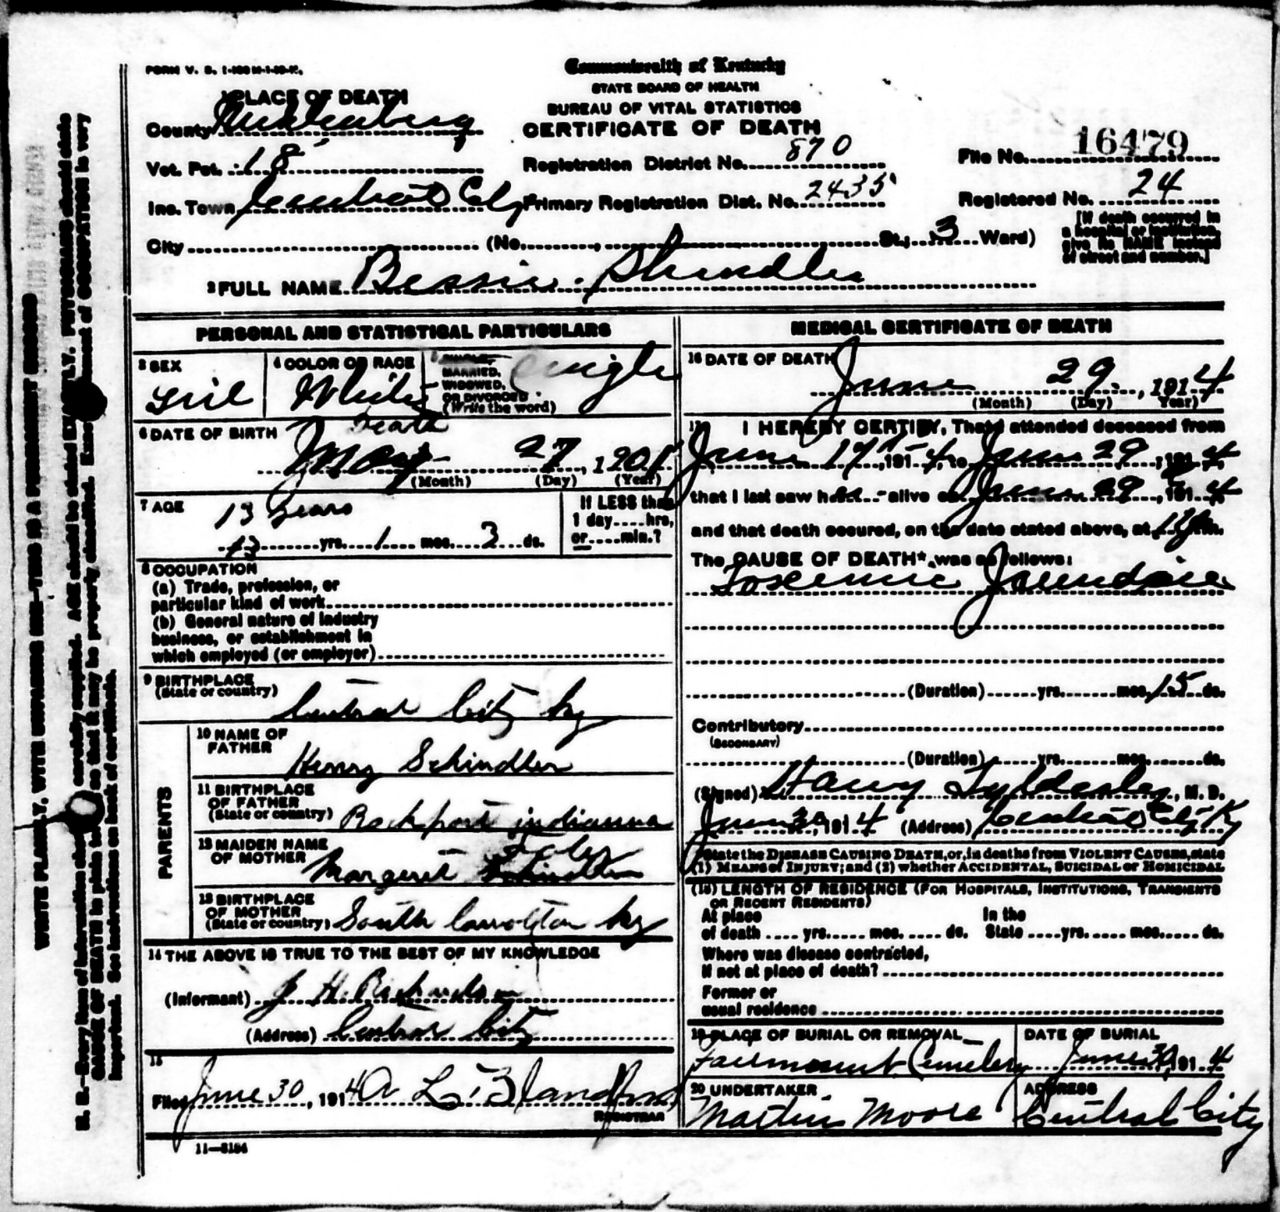 FORM V. S. 1-
Commonwealth of Kentucky
STATE BOARD OF HEALTH
BUREAU OF VITAL STATISTICS
CERTIFICATE OF DEATH
1 PLACE OF DEATH
County Muhlenberg
Vot. Pct. 18
Inc. Town Central City
City (No. , St.; 3 Ward)
Registration District No. 870
Primary Registration Dist. No. 2435
File No. 16479
Registered No. 24
[If death occurred in
a hospital or institution,
give its NAME instead
of street and number.]
2 FULL NAME Bessie Shindler
PERSONAL AND STATISTICAL PARTICULARS
3 SEX
Girl
4 COLOR OR RACE
White
5 SINGLE,
MARRIED,
WIDOWED,
OR DIVORCED
(Write the word)
Single
6 DATE OF BIRTH
Death
May 27, 1901
(Month) (Day) (Year)
7 AGE
13 years
13 yrs. 1 mos. 3 ds.
If LESS than
1 day....hrs,
or.....min.?
8 OCCUPATION
(a) Trade, profession, or
particular kind of work
(b) General nature of industry
business, or establishment in
which employed (or employer)
9 BIRTHPLACE
(State or country)
Central City Ky
PARENTS
10 NAME OF
FATHER
Henry Schindler
11 BIRTHPLACE
OF FATHER
(State or country) Rockport indianna
12 MAIDEN NAME
OF MOTHER
Margaret
13 BIRTHPLACE
OF MOTHER
(State or country) South Carrollton Ky
14 THE ABOVE IS TRUE TO THE BEST OF MY KNOWLEDGE
(Informant) J H. Richardson
(Address) Central City
15
Filed June 30, 1914
REGISTRAR
11-3184
MEDICAL CERTIFICATE OF DEATH
16 DATE OF DEATH
June 29, 1914
(Month) (Day) (Year)
17 I HEREBY CERTIFY, That I attended deceased from
June 17th, 1914, to June 29, 1914
that I last saw her alive on June 29, 1914
and that death occured, on the date stated above, at m.
The CAUSE OF DEATH* was as follows:
Toxemic Jaundice
(Duration) yrs. mos. 15 ds.
Contributory
(SECONDARY)
(Duration) yrs. mos. ds.
(Signed) Harry Tyldesley, M. D.
June 30, 1914 (Address) Central City Ky
*State the DISEASE CAUSING DEATH, or, in deaths from VIOLENT CAUSES, state
(1) MEANS OF INJURY; and (2) whether ACCIDENTAL, SUICIDAL OR HOMICIDAL
(18) LENGTH OF RESIDENCE (FOR HOSPITALS, INSTITUTIONS, TRANSIENTS
OR RECENT RESIDENTS)
At place
of death yrs. mos. ds.
In the
State yrs. mos. ds.
Where was disease contracted,
if not at place of death?
Former or
usual residence
19 PLACE OF BURIAL OR REMOVAL
Fairmount Cemetery
DATE OF BURIAL
June 30, 1914
20 UNDERTAKER
Martin Moore
ADDRESS
Central City
WRITE PLAINLY, WITH UNFADING INK—THIS IS A PERMANENT RECORD
N. B.—Every item of information should be carefully supplied. AGE should be stated EXACTLY. PHYSICIANS should state
CAUSE OF DEATH in plain terms, so that it may be properly classified. Exact statement of OCCUPATION is very
important. See instructions on back of certificate.